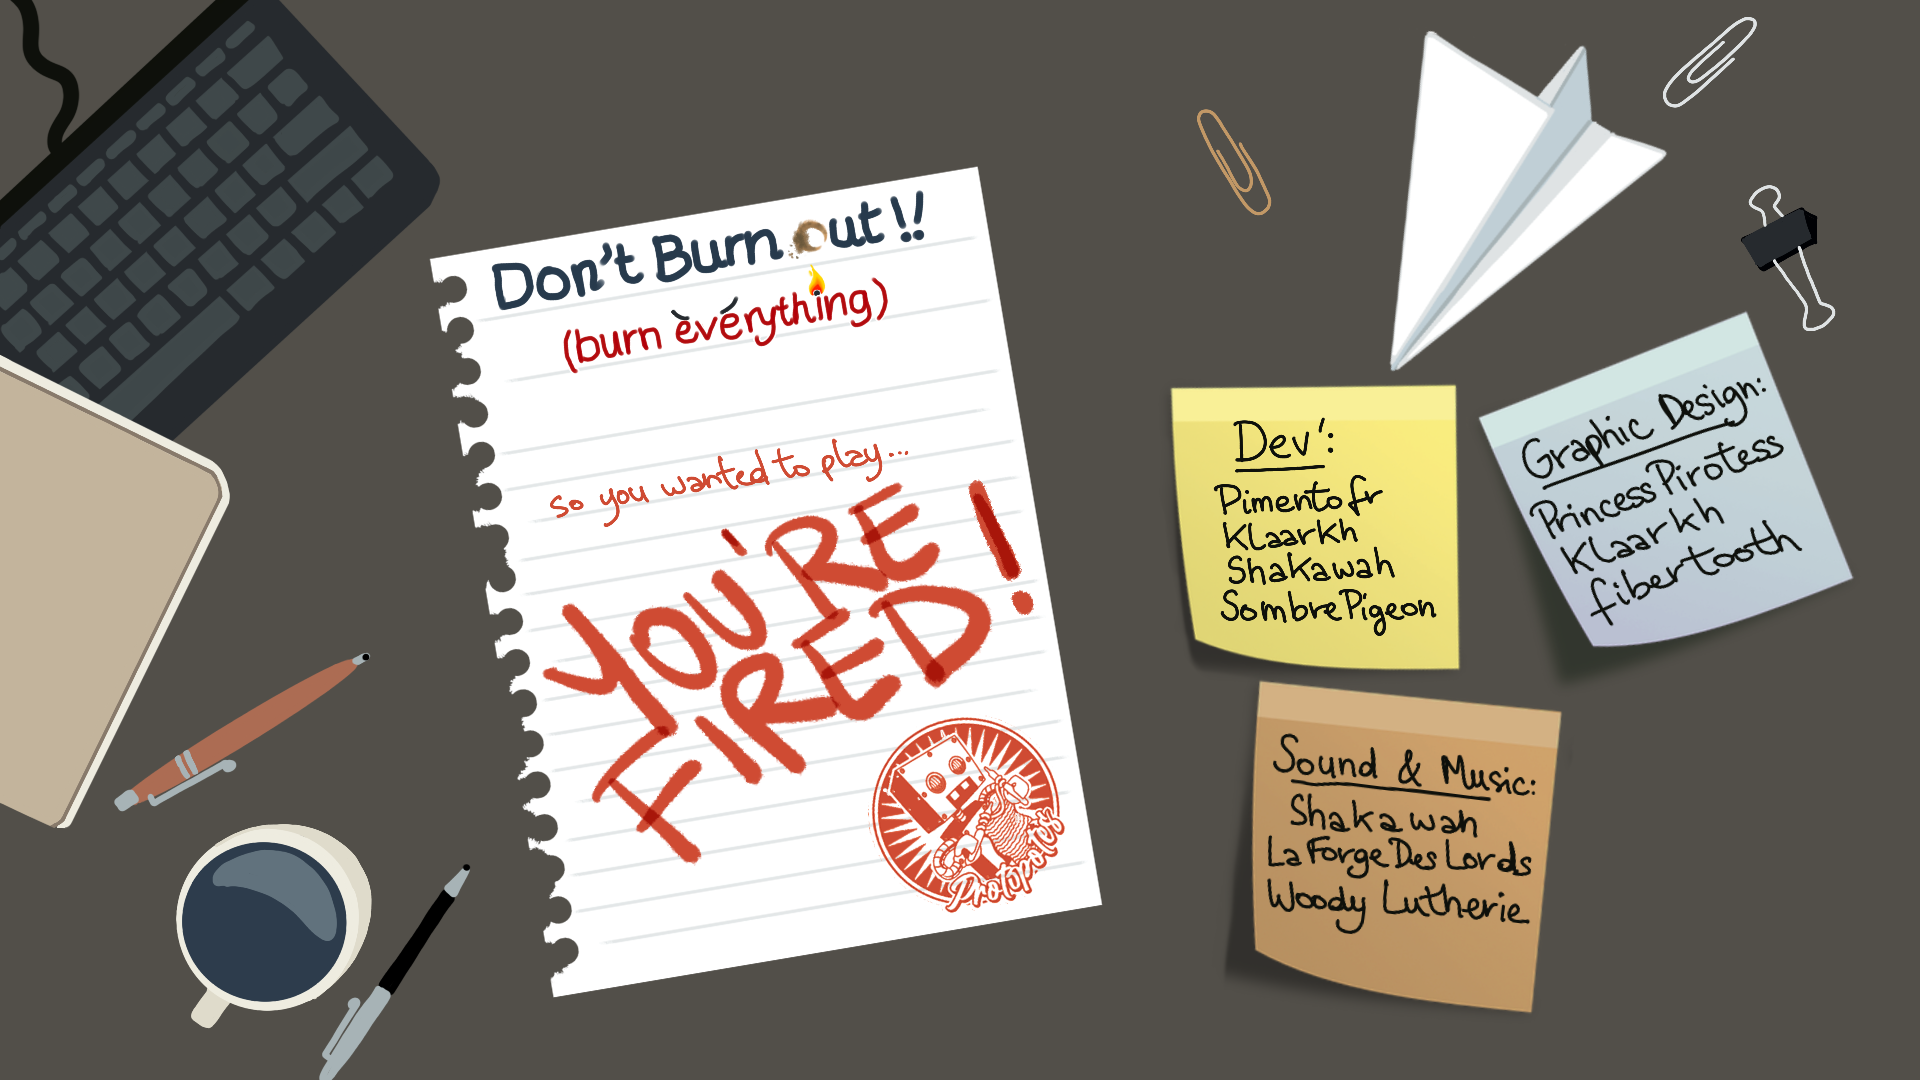 Don't Burn out!!
(burn everything)
so you wanted to play...
YOU'RE
FIRED!
Protopotes
Dev':
Pimentofr
Klaarkh
Shakawah
SombrePigeon
Graphic Design:
PrincessPirotess
Klaarkh
fibertooth
Sound & Music:
Shakawah
LaForgeDesLords
Woody Lutherie